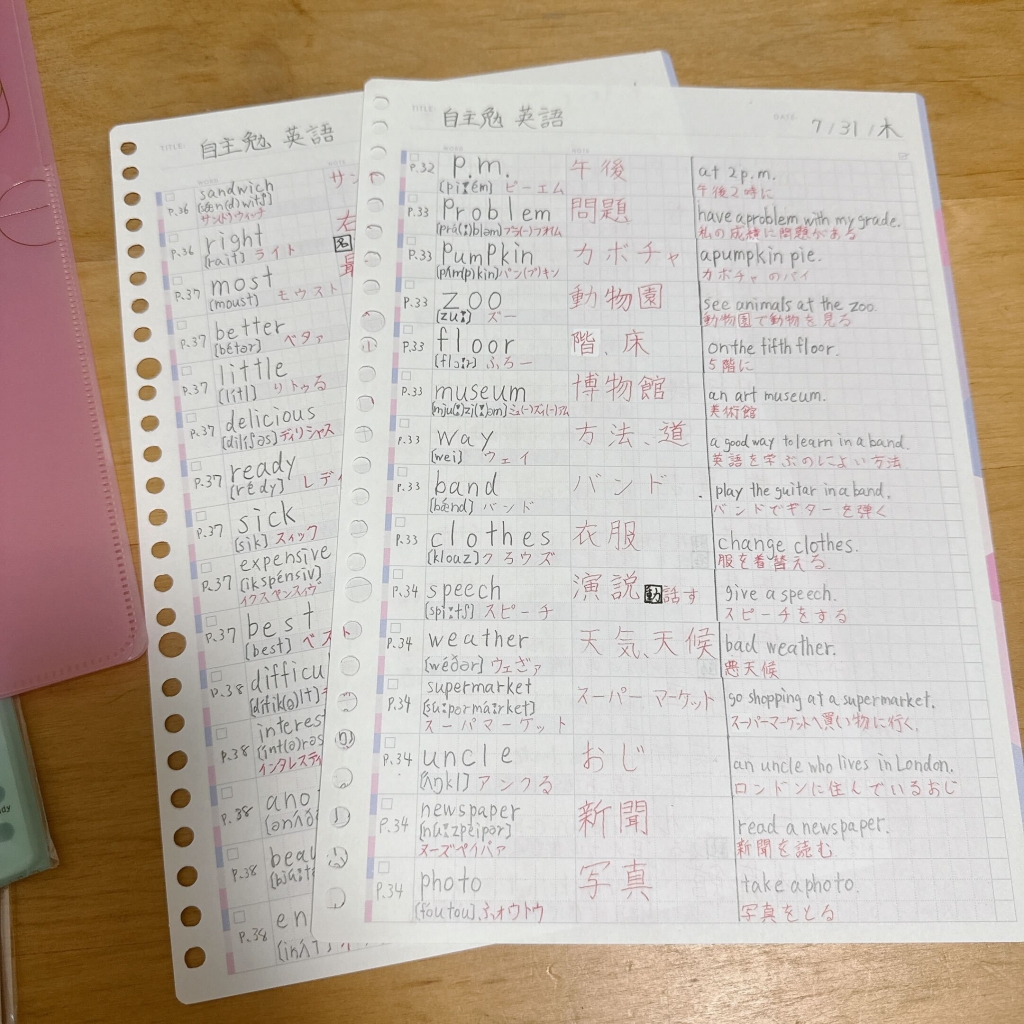 TITLE: 自主勉 英語
sandwich
P.36 [sæn(d)witʃ]
サンドウィッチ
right 右
P.36 [rait] ライト 名
most 最
P.37 [moust] モウスト
better
P.37 [bétər] ベタァ
little
P.37 [lítl] リトゥる
delicious
P.37 [dilíʃəs] ディリシャス
ready
P.37 [rédy] レディ
sick
P.37 [sik] スィック
expensive
P.37 [ikspénsiv]
イクスペンスィヴ
best
P.37 [best] ベスト
difficu
P.38
interes
P.38 [ínt(ə)rəs
インタレスティ
ano
P.38
beau
P.38
en
P.38
TITLE: 自主勉 英語 DATE: 7/31/木
P.32 p.m. 午後 at 2p.m.
[pi:ém] ピーエム 午後2時に
P.33 Problem 問題 have a problem with my grade.
[prá(:)bləm] プラ(ー)ブれム 私の成績に問題がある
P.33 Pumpkin カボチャ a pumpkin pie.
[pʌ́m(p)kin] パン(プ)キン カボチャのパイ
P.33 zoo 動物園 see animals at the zoo.
[zu:] ズー 動物園で動物を見る
P.33 floor 階、床 on the fifth floor.
[flɔ:r] ふろー 5階に
P.33 museum 博物館 an art museum.
[mju(:)zí(:)əm] ミュ(ー)ズィ(ー)アム 美術館
P.33 way 方法、道 a good way to learn in a band.
[wei] ウェイ 英語を学ぶのによい方法
P.33 band バンド play the guitar in a band.
[bænd] バンド バンドでギターを弾く
P.33 clothes 衣服 change clothes.
[klouz] クろウズ 服を着替える.
P.34 speech 演説 動話す give a speech.
[spi:tʃ] スピーチ スピーチをする
P.34 weather 天気、天候 bad weather.
[wéðər] ウェざァ 悪天候
P.34 supermarket スーパーマーケット go shopping at a supermarket.
[sú:pərmà:rket] スーパーマーケットへ買い物に行く.
スーパマーケット
P.34 uncle おじ an uncle who lives in London.
[ʌ́ŋkl] アンクる ロンドンに住んでいるおじ
P.34 newspaper 新聞 read a newspaper.
[nú:zpèipər] 新聞を読む
ヌーズペイパァ
P.34 photo 写真 take a photo.
[fóutou] ふォウトウ 写真をとる